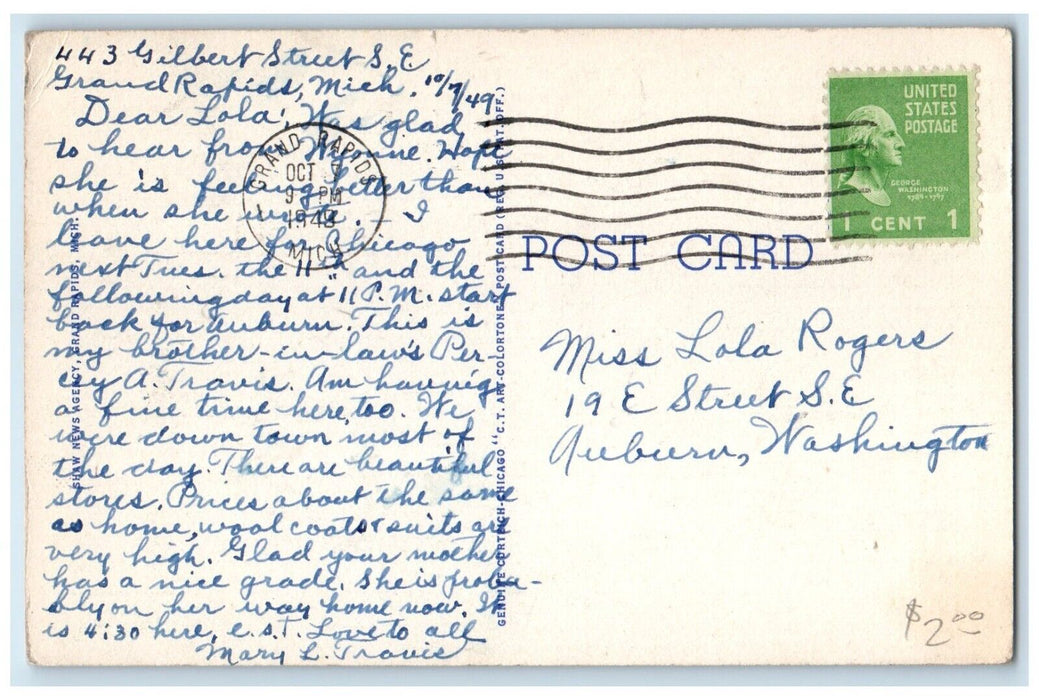 443 Gilbert Street S.E
Grand Rapids, Mich. 10/7/49
Dear Lola; Was glad
to hear from Hope
she is feeling better than
when she wrote. — I
leave here for Chicago
next Tues. the 11th and the
following day at 11 P.M. start
back for Auburn. This is
my brother-in-law's Per-
cy A. Travis. Am having
a fine time here, too. We
were down town most of
the day. There are beautiful
stores. Prices about the same
as home, wool coats & suits are
very high. Glad your mother
has a nice grade. She is proba-
bly on her way home now. It
is 4:30 here, e.s.T. Love to all
Mary L. Travis
SHAW NEWS AGENCY, GRAND RAPIDS, MICH.
GENUINE CURTEICH-CHICAGO "C.T. ART-COLORTONE" POSTCARD (REG. U.S. PAT. OFF.)
GRAND RAPIDS
OCT 7
9 PM
1949
MICH
UNITED
STATES
POSTAGE
GEORGE
WASHINGTON
1789-1797
1 CENT 1
POST CARD
Miss Lola Rogers
19 E Street S.E
Auburn, Washington
$2.00